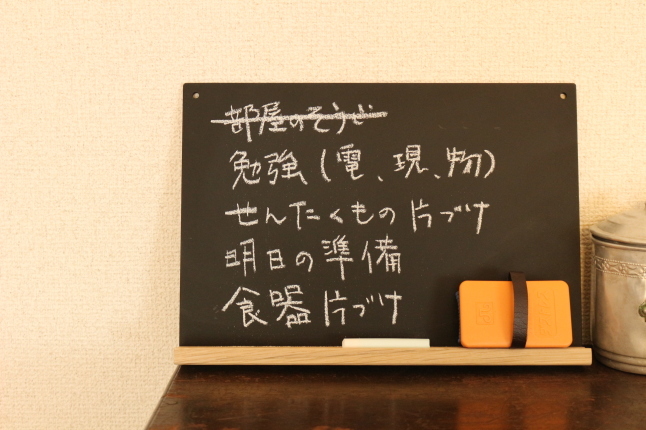 部屋のそうじ
勉強(電、現、物)
せんたくもの片づけ
明日の準備
食器片づけ